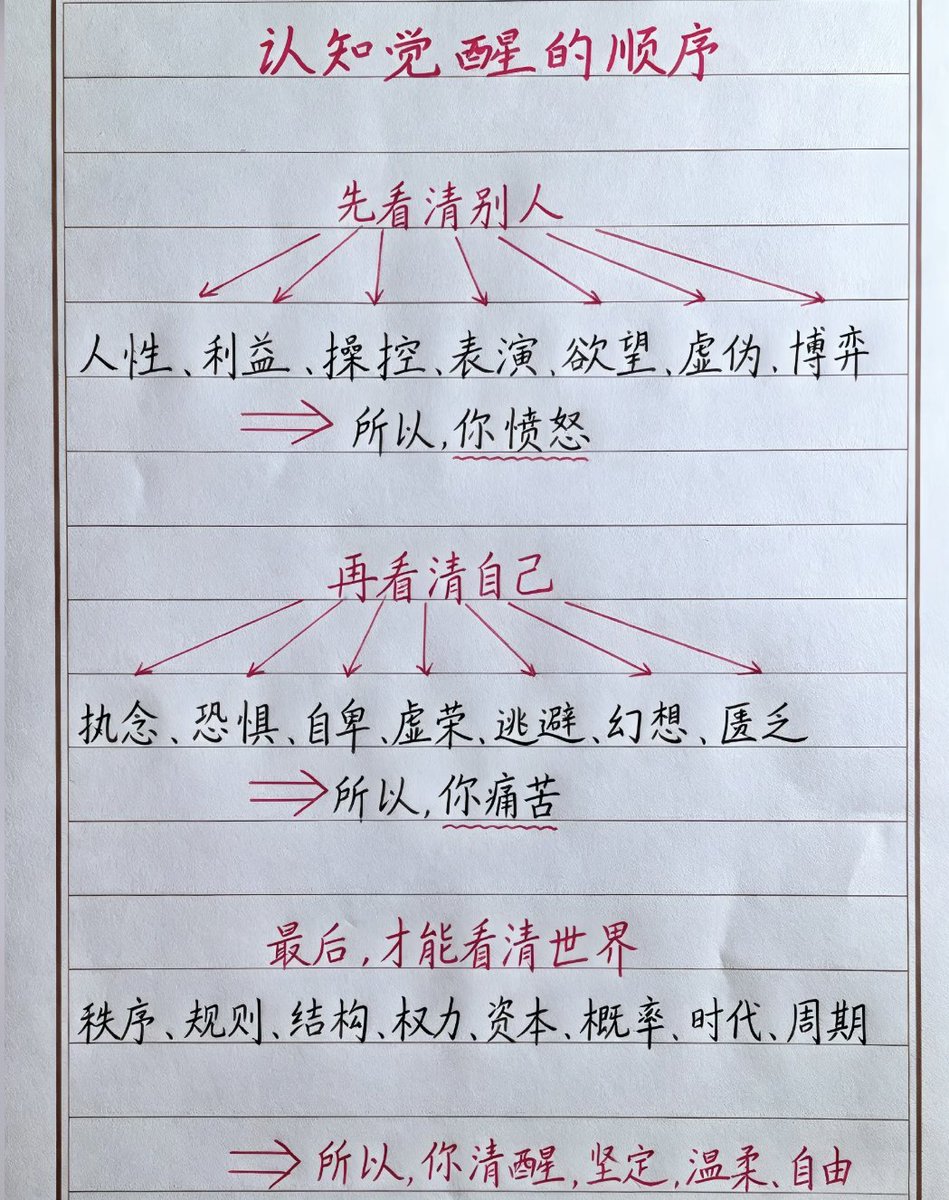 认知觉醒的顺序
先看清别人
人性、利益、操控、表演、欲望、虚伪、博弈
所以,你愤怒
再看清自己
执念、恐惧、自卑、虚荣、逃避、幻想、匮乏
所以,你痛苦
最后,才能看清世界
秩序、规则、结构、权力、资本、概率、时代、周期
所以,你清醒,坚定,温柔,自由